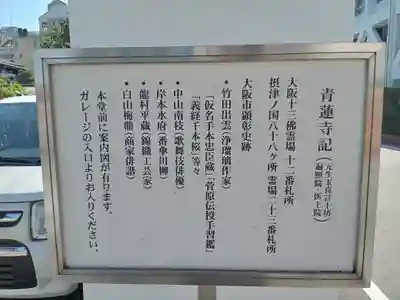 青蓮寺記（元生玉真言十坊
遍照院・医王院）
大阪十三佛霊場 十二番札所
摂津ノ国八十八ヶ所霊場二十三番札所
大阪市顕彰史跡
・竹田出雲（浄瑠璃作家）
「仮名手本忠臣蔵」「菅原伝授手習鑑」
「義経千本桜」等々
・中山南枝（歌舞伎俳優）
・岸本水府（番傘川柳）
・龍村平蔵（錦織工芸家）
・白山梅顛（商家俳諧）
本堂前に案内図が有ります。
ガレージの入口よりお入りください。